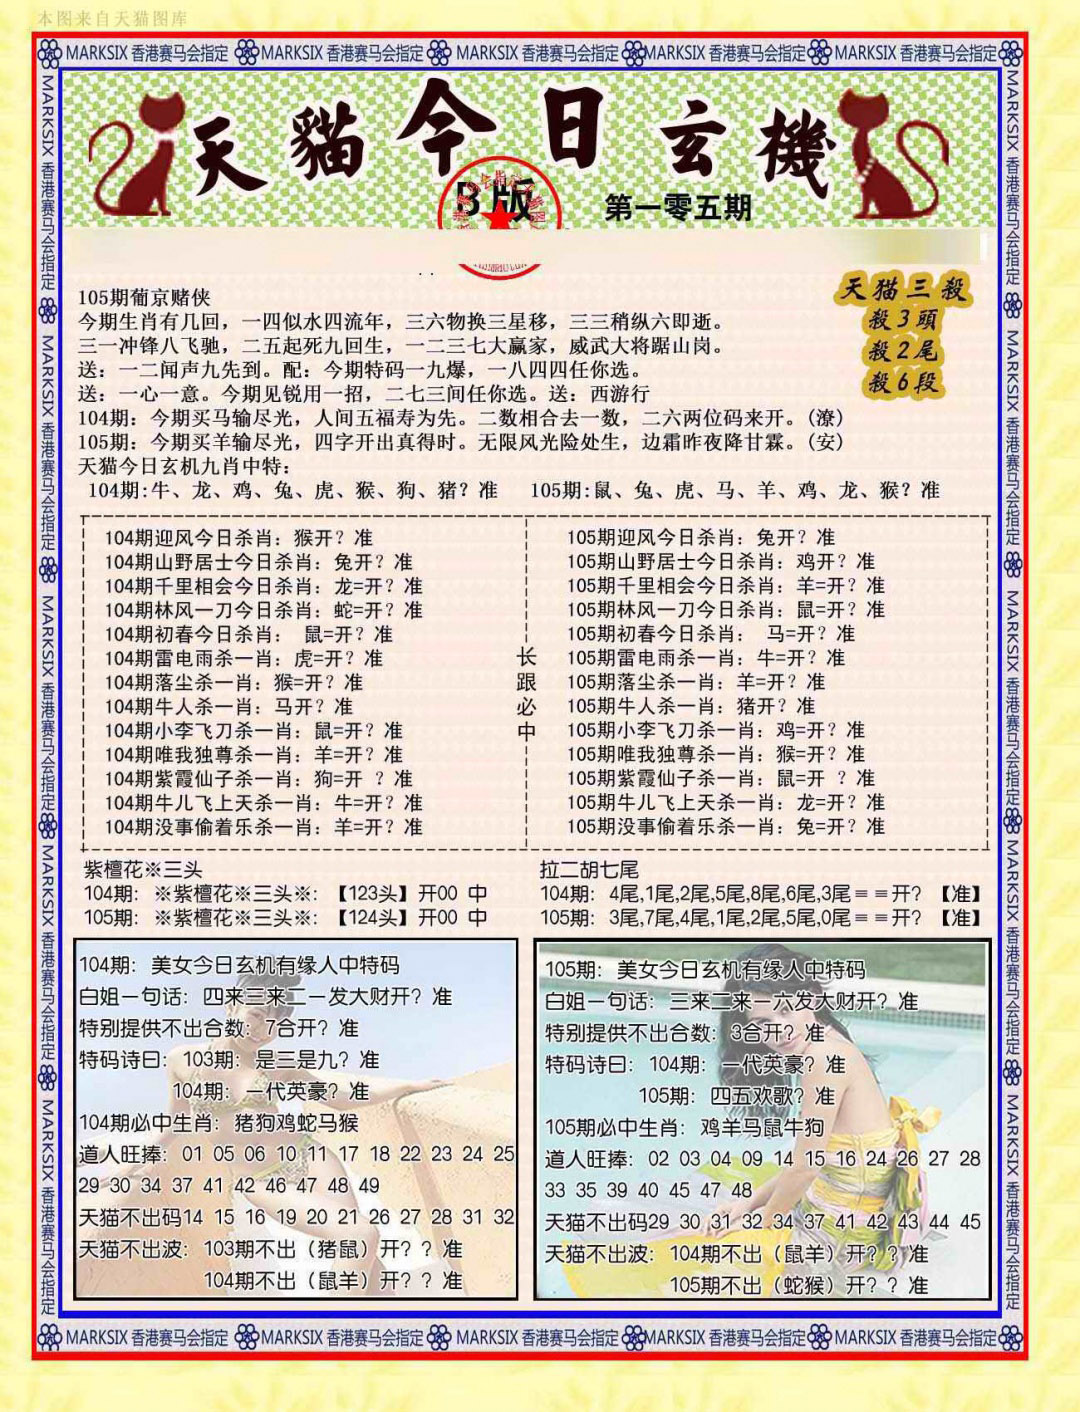 本图来自天猫图库
MARKSIX 香港赛马会指定 MARKSIX 香港赛马会指定 MARKSIX 香港赛马会指定 MARKSIX 香港赛马会指定 MARKSIX 香港赛马会指定
天貓今日玄機
B版
第一零五期
天猫三殺
殺3頭
殺2尾
殺6段
105期葡京赌侠
今期生肖有几回，一四似水四流年，三六物换三星移，三三稍纵六即逝。
三一冲锋八飞驰，二五起死九回生，一二三七大赢家，威武大将踞山岗。
送：一二闻声九先到。配：今期特码一九爆，一八四四任你选。
送：一心一意。今期见锐用一招，二七三间任你选。送：西游行
104期：今期买马输尽光，人间五福寿为先。二数相合去一数，二六两位码来开。(潦)
105期：今期买羊输尽光，四字开出真得时。无限风光险处生，边霜昨夜降甘霖。(安)
天猫今日玄机九肖中特：
104期:牛、龙、鸡、兔、虎、猴、狗、猪？准 105期:鼠、兔、虎、马、羊、鸡、龙、猴？准
104期迎风今日杀肖：猴开？准
104期山野居士今日杀肖：兔开？准
104期千里相会今日杀肖：龙=开？准
104期林风一刀今日杀肖：蛇=开？准
104期初春今日杀肖： 鼠=开？准
104期雷电雨杀一肖：虎=开？准
104期落尘杀一肖：猴=开？准
104期牛人杀一肖：马开？准
104期小李飞刀杀一肖：鼠=开？准
104期唯我独尊杀一肖：羊=开？准
104期紫霞仙子杀一肖：狗=开 ？准
104期牛儿飞上天杀一肖：牛=开？准
104期没事偷着乐杀一肖：羊=开？准
长
跟
必
中
105期迎风今日杀肖：兔开？准
105期山野居士今日杀肖：鸡开？准
105期千里相会今日杀肖：羊=开？准
105期林风一刀今日杀肖：鼠=开？准
105期初春今日杀肖： 马=开？准
105期雷电雨杀一肖：牛=开？准
105期落尘杀一肖：羊=开？准
105期牛人杀一肖：猪开？准
105期小李飞刀杀一肖：鸡=开？准
105期唯我独尊杀一肖：猴=开？准
105期紫霞仙子杀一肖：鼠=开 ？准
105期牛儿飞上天杀一肖：龙=开？准
105期没事偷着乐杀一肖：兔=开？准
紫檀花※三头
104期：※紫檀花※三头※：【123头】开00 中
105期：※紫檀花※三头※：【124头】开00 中
拉二胡七尾
104期：4尾,1尾,2尾,5尾,8尾,6尾,3尾==开？【准】
105期：3尾,7尾,4尾,1尾,2尾,5尾,0尾==开？【准】
104期：美女今日玄机有缘人中特码
白姐一句话：四来三来二一发大财开？准
特别提供不出合数：7合开？准
特码诗曰：103期：是三是九？准
104期：一代英豪？准
104期必中生肖：猪狗鸡蛇马猴
道人旺捧：01 05 06 10 11 17 18 22 23 24 25
29 30 34 37 41 42 46 47 48 49
天猫不出码14 15 16 19 20 21 26 27 28 31 32
天猫不出波：103期不出（猪鼠）开？？准
104期不出（鼠羊）开？？准
105期：美女今日玄机有缘人中特码
白姐一句话：三来二来一六发大财开？准
特别提供不出合数：3合开？准
特码诗曰：104期：一代英豪？准
105期：四五欢歌？准
105期必中生肖：鸡羊马鼠牛狗
道人旺捧：02 03 04 09 14 15 16 24 26 27 28
33 35 39 40 45 47 48
天猫不出码29 30 31 32 34 37 41 42 43 44 45
天猫不出波：104期不出（鼠羊）开？？准
105期不出（蛇猴）开？？准
MARKSIX 香港赛马会指定 MARKSIX 香港赛马会指定 MARKSIX 香港赛马会指定 MARKSIX 香港赛马会指定 MARKSIX 香港赛马会指定
MARKSIX 香港赛马会指定 MARKSIX 香港赛马会指定 MARKSIX 香港赛马会指定 MARKSIX 香港赛马会指定 MARKSIX 香港赛马会指定
MARKSIX 香港赛马会指定 MARKSIX 香港赛马会指定 MARKSIX 香港赛马会指定 MARKSIX 香港赛马会指定 MARKSIX 香港赛马会指定